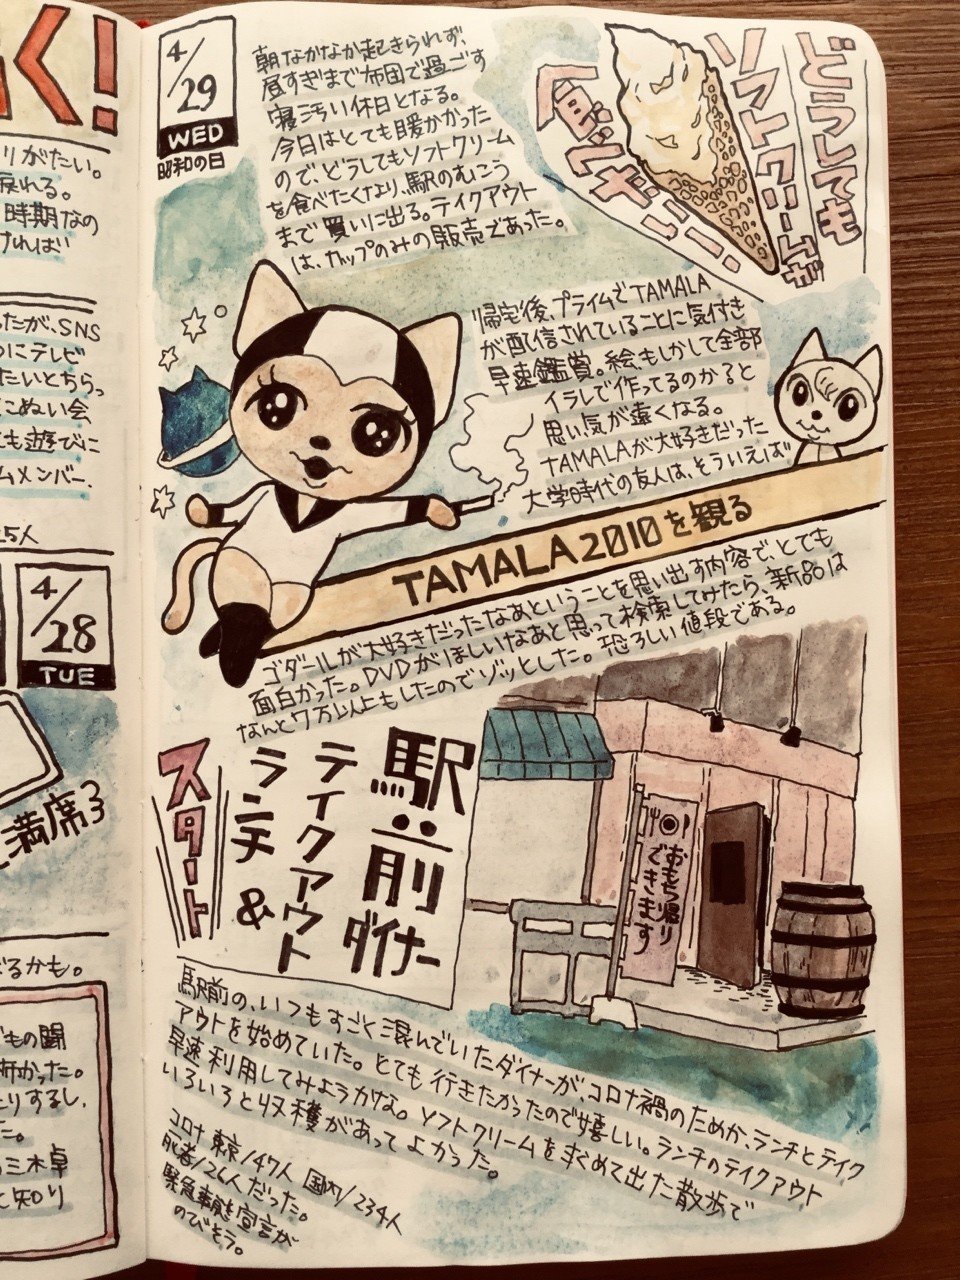 く!
りがたい。
戻れる。
時期なの
ければ
たが、SNS
つにテレビ
たいとちらっ
こぬい会
も遊びに
ムメンバー.
25人
4/28
TUE
満席
ぶるかも。
どもの闘
たりするし、
た。
三木卓
と知り
4/29
WED
昭和の日
朝なかなか起きられず、
昼すぎまで布団で過ごす
寝汚い休日となる。
今日はとても暖かかった
ので、どうしてもソフトクリーム
を食べたくなり、駅のむこう
まで買いに出る。テイクアウト
は、カップのみの販売であった。
どうしても
ソフトクリームが
食べたい
帰宅後、プライムでTAMALA
が配信されていることに気付き
早速鑑賞。絵、もしかして全部
イラレで作ってるのか?と
思い気が遠くなる。
TAMALAが大好きだった
大学時代の友人は、そういえば
TAMALA2010を観る
ゴダールが大好きだったなあということを思い出す内容で、とても
面白かった。DVDがほしいなあと思って検索してみたら、新品は
なんと7万以上もしたのでゾッとした。恐ろしい値段である。
駅前ダイナー
テイクアウト
ランチ&
スタート
おもち帰り
できます
駅前の、いつもすごく混んでいたダイナーが、コロナ禍のためか、ランチとテイク
アウトを始めていた。とても行きたかったので嬉しい。ランチのテイクアウト
早速利用してみようかな。ソフトクリームを求めて出た散歩で
いろいろと収穫があってよかった。
コロナ 東京/47人 国内/234人
死者/26人だった。
緊急事態宣言が
のびそう。